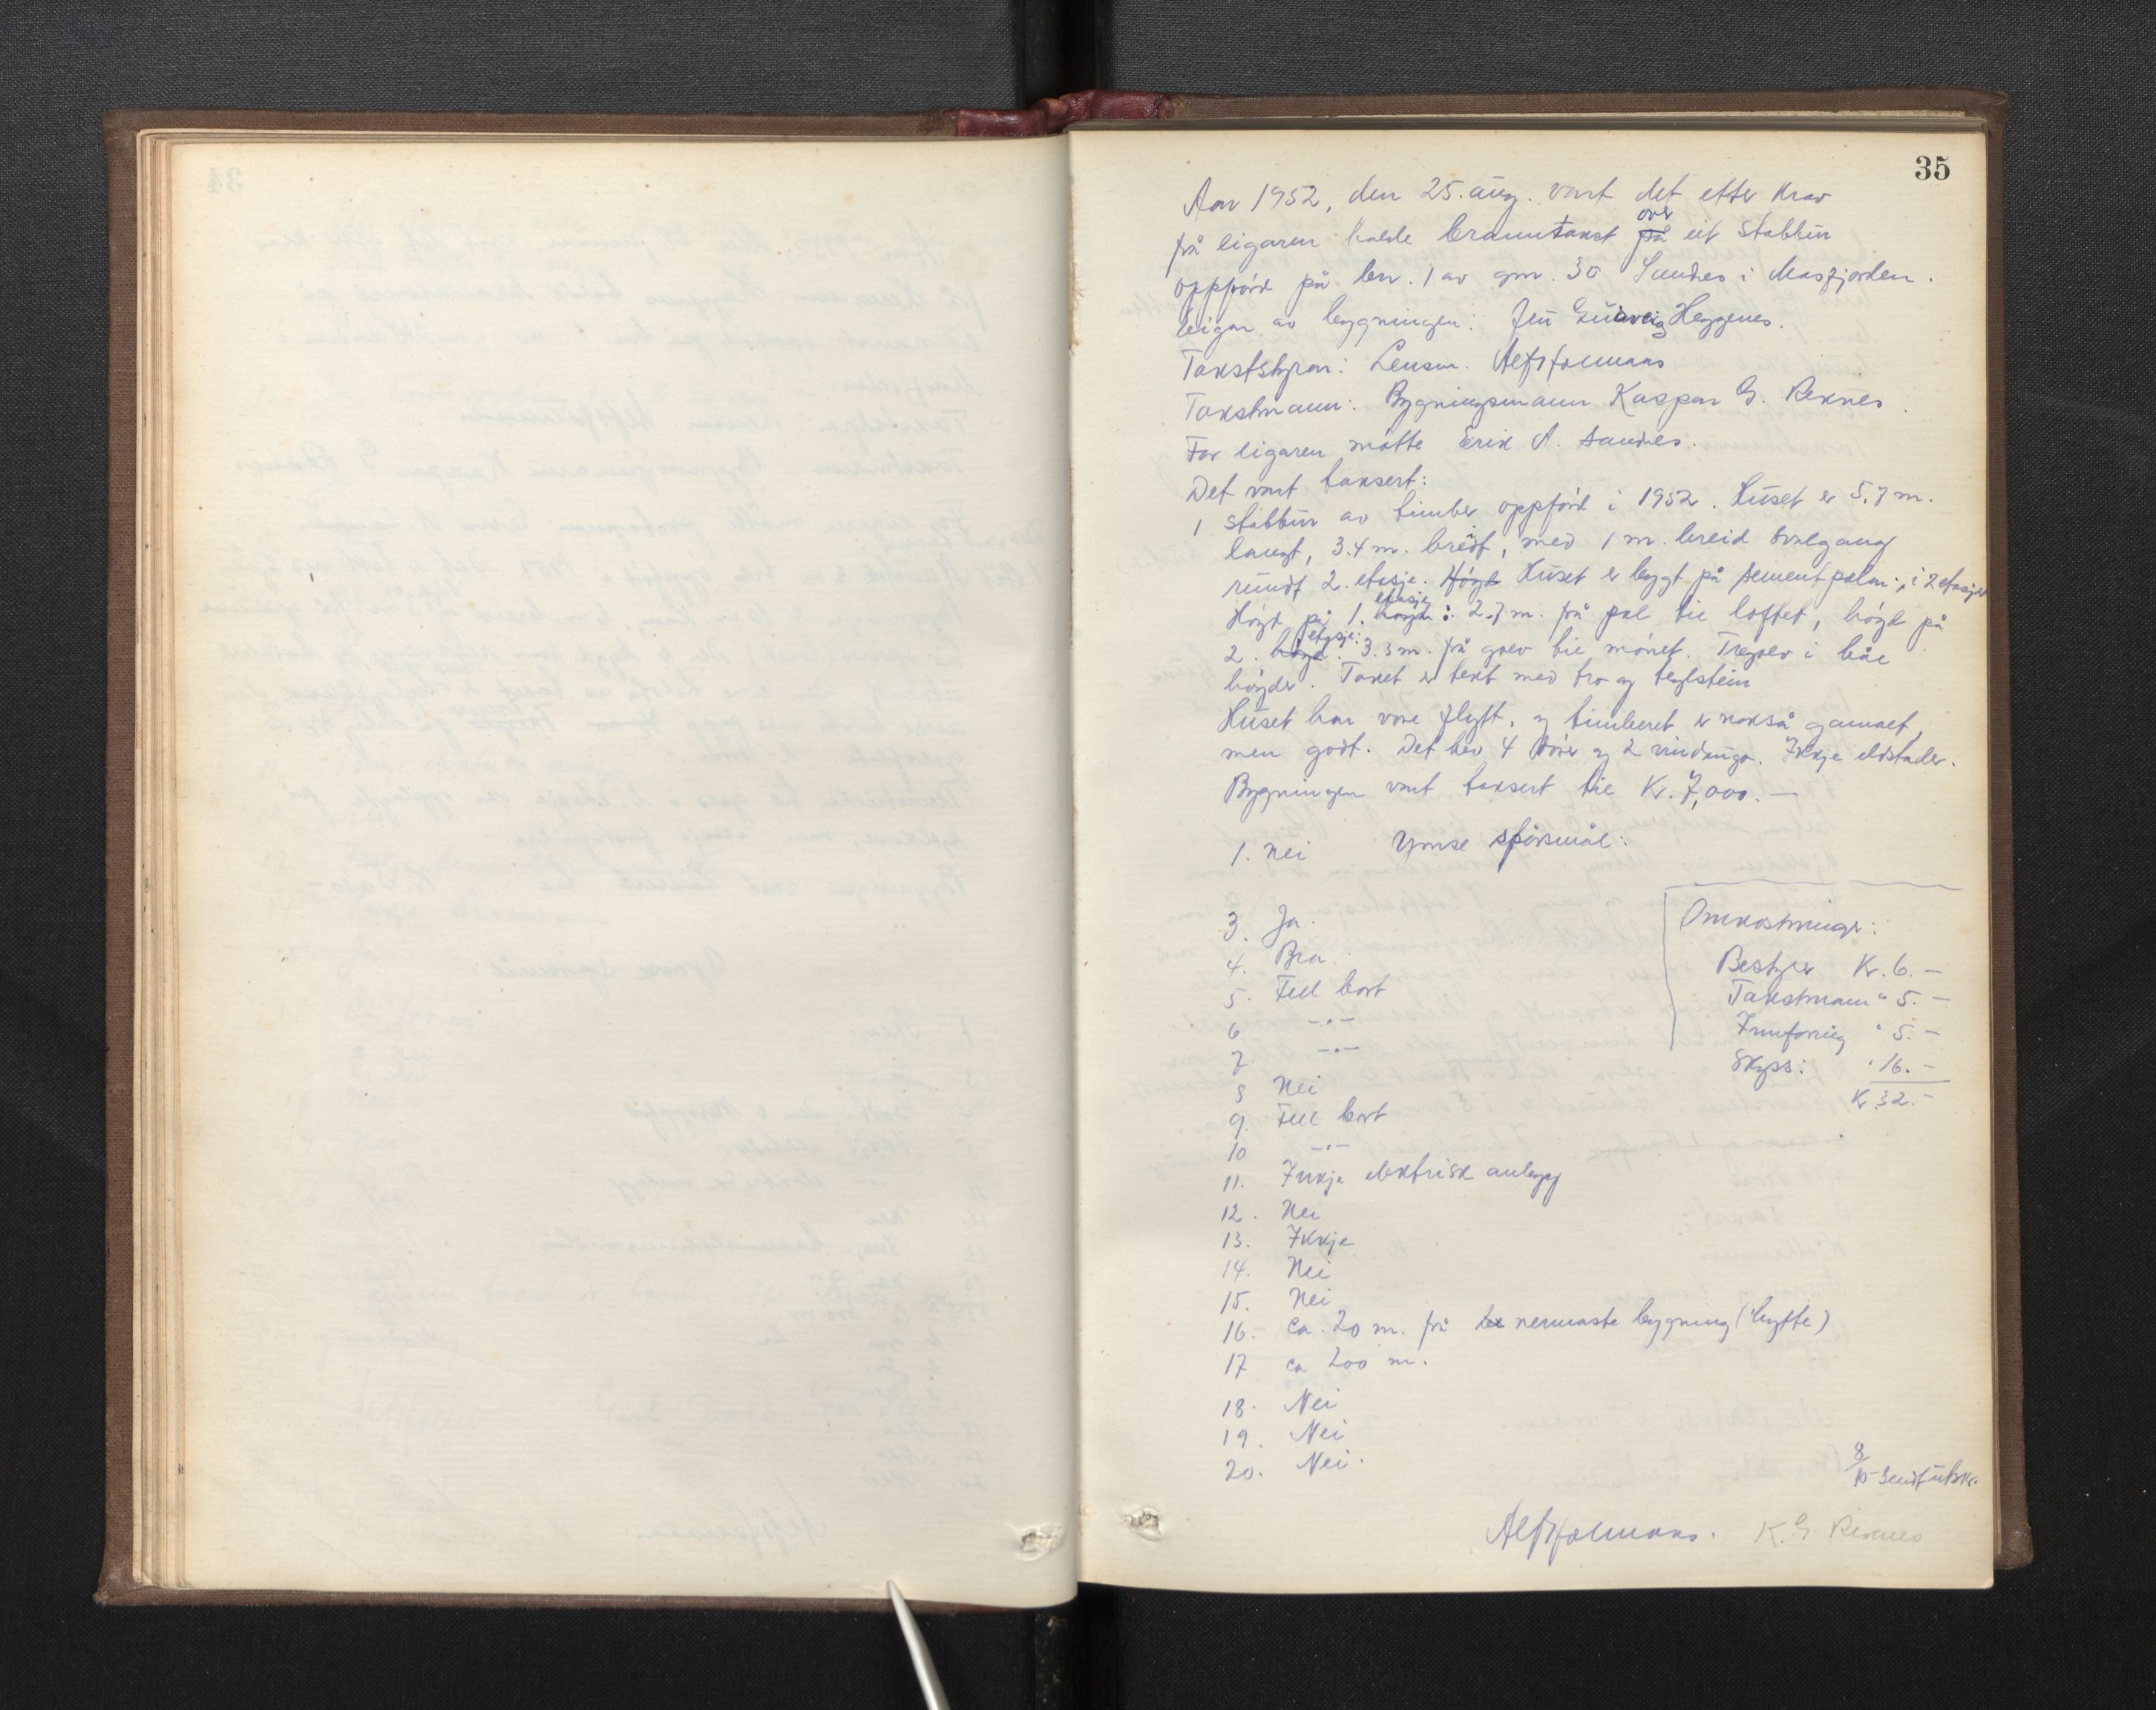 35
Aar 1952, den 25. aug. vart det etter krav
frå eigaren halde branntakst på over eit stabbur
oppförd på bnr. 1 av gnr. 30 Sandnes i Masfjorden.
Eigar av bygningen: Heggenes.
Takststyrar: Lensm. Alf Holmaas
Takstmann: Bygningsmann Kaspar G. Reknes
For eigaren møtte Erik A. Sandnes.
Det vart taksert:
1 stabbur av timber oppförd i 1952. Huset er 5.7 m.
langt, 3.4 m. breidt, med 1 m. breid svalgang
rundt 2. etasje. Høgd Huset er bygt på sementpelar i 2 etasjer
Høgd på 1. høgd etasje: 2.7 m. frå pel til loftet, høgd på
2. høgd etasje: 3.3 m. frå golv til mønet. Tregolv i båe
høgder. Taket er tekt med tro og teglstein
Huset har vore flytt, og timberet er nokså gamalt,
men godt. Det hev 4 dører og 2 vindaugo. Ikkje eldstader.
Bygningen vart taksert til Kr. 7,000.—
Ymse spörsmål:
1. Nei
3. Ja.
4. Bra.
5. Fell bort
6 -"-
7 -"-
8 Nei
9. Fell bort
10 -"-
11. Inkje elektrisk anlegg
12. Nei
13. Ikkje
14. Nei
15. Nei
16. Ca. 20 m. frå nermaste bygning (hytte)
17 ca 200 m.
18. Nei
19. Nei
20. Nei.
Omkostninger:
Bestyrer Kr. 6.—
Takstmann " 5.—
Innföring " 5.—
Skyss: " 16.—
Kr 32.—
8/10 sendt utskr.
Alf Holmaas. K. G. Reknes